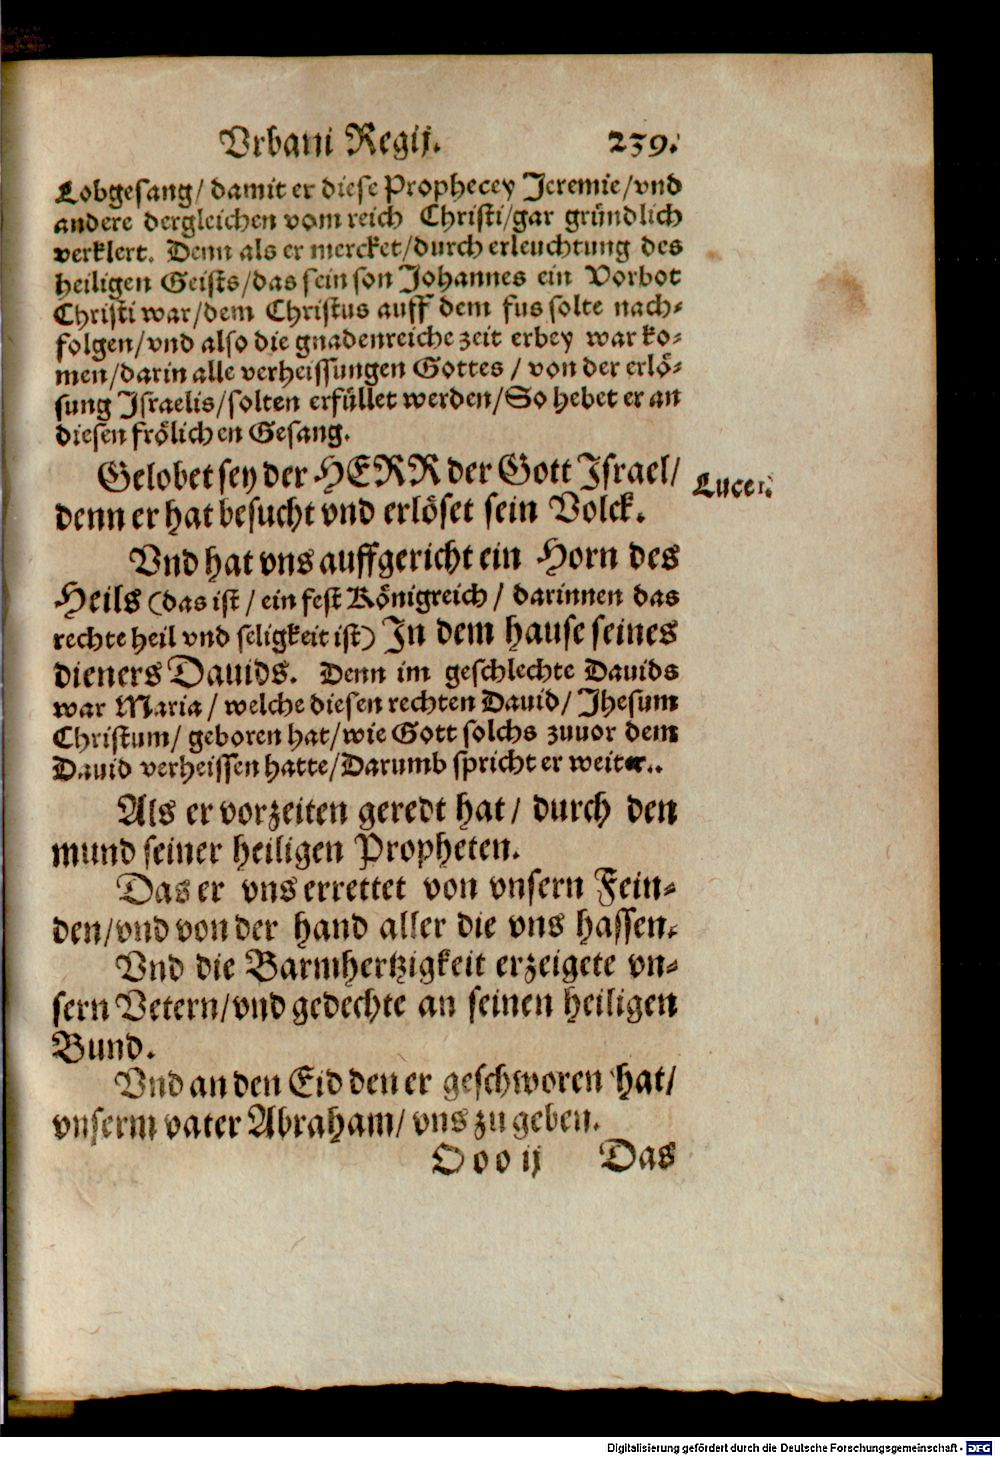 Vrbani Regij. 239.
Lobgesang/ damit er diese Prophecey Jeremie/vnd
andere dergleichen vom reich Christi/gar gründlich
verklert. Denn als er mercket/durch erleuchtung des
heiligen Geists/das sein son Johannes ein Vorbot
Christi war/dem Christus auff dem fus solte nach-
folgen/vnd also die gnadenreiche zeit erbey war ko-
men/darin alle verheissungen Gottes / von der erlö-
sung Israelis/solten erfüllet werden/So hebet er an
diesen frölichen Gesang.
Gelobet sey der HERR der Gott Israel/
Luce
denn er hat besucht vnd erlöset sein Volck.
Vnd hat vns auffgericht ein Horn des
Heils (das ist / ein fest Königreich / darinnen das
rechte heil vnd seligkeit ist) In dem hause seines
dieners Dauids. Denn im geschlechte Dauids
war Maria / welche diesen rechten Dauid/ Jhesum
Christum/ geboren hat/wie Gott solchs zuuor dem
Dauid verheissen hatte/Darumb spricht er weiter..
Als er vorzeiten geredt hat/ durch den
mund seiner heiligen Propheten.
Das er vns errettet von vnsern Fein-
den/vnd von der hand aller die vns hassen.
Vnd die Barmhertzigkeit erzeigete vn-
sern Vetern/vnd gedechte an seinen heiligen
Bund.
Vnd an den Eid den er geschworen hat/
vnserm vater Abraham/ vns zu geben.
Ooo ij Das
Digitalisierung gefördert durch die Deutsche Forschungsgemeinschaft - DFG